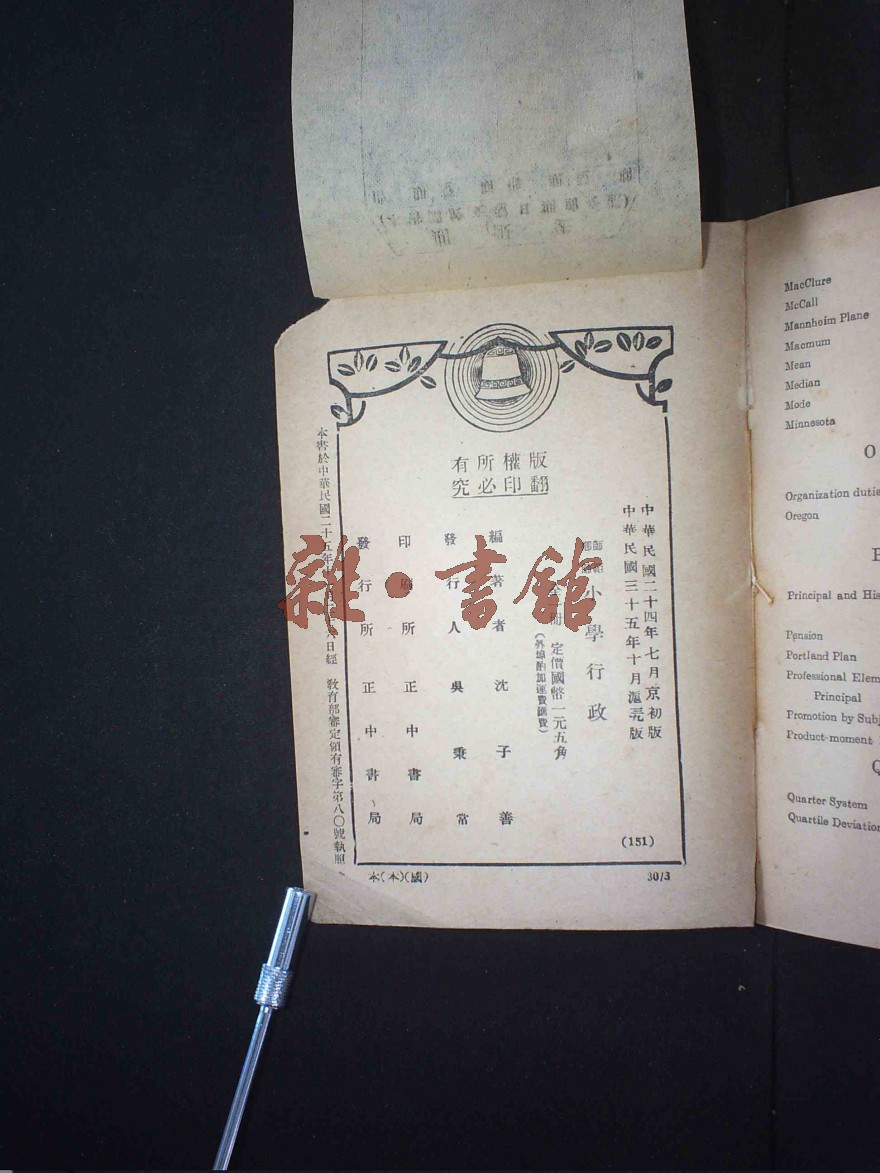 版權所有
翻印必究
中華民國二十四年七月京初版
中華民國三十五年十月滬一版
小學行政
冊 定價國幣一元五角
(外埠酌加運費匯費)
編著者 沈子善
發行人 吳秉常
印刷所 正中書局
發行所 正中書局
(151)
本書於中華民國二十五年
日經 教育部審定領有審字第八〇號執照
30/3
本(本)(國)
雜·書館
MacClure
McCall
Mannheim Plane
Macmum
Mean
Median
Mode
Minnesota
O
Organization
Oregon
Principal and
Pension
Portland Plan
Professional
Principal
Promotion by
Product-moment
Q
Quarter System
Quartile